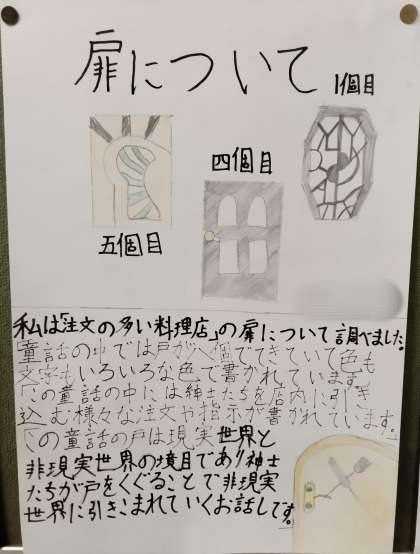 扉について
1個目
四個目
五個目
私は「注文の多い料理店」の扉について調べました。
「童話の中では戸が八個でてきていて色も
文字もいろいろな色で書かれています。
「この童話の中には紳士たちを店内に引き
込む様々な注文や指示が書かれています。」
「この童話の戸は現実世界と
非現実世界の境目であり紳士
たちが戸をくぐることで非現実
世界に引きこまれていくお話しです。